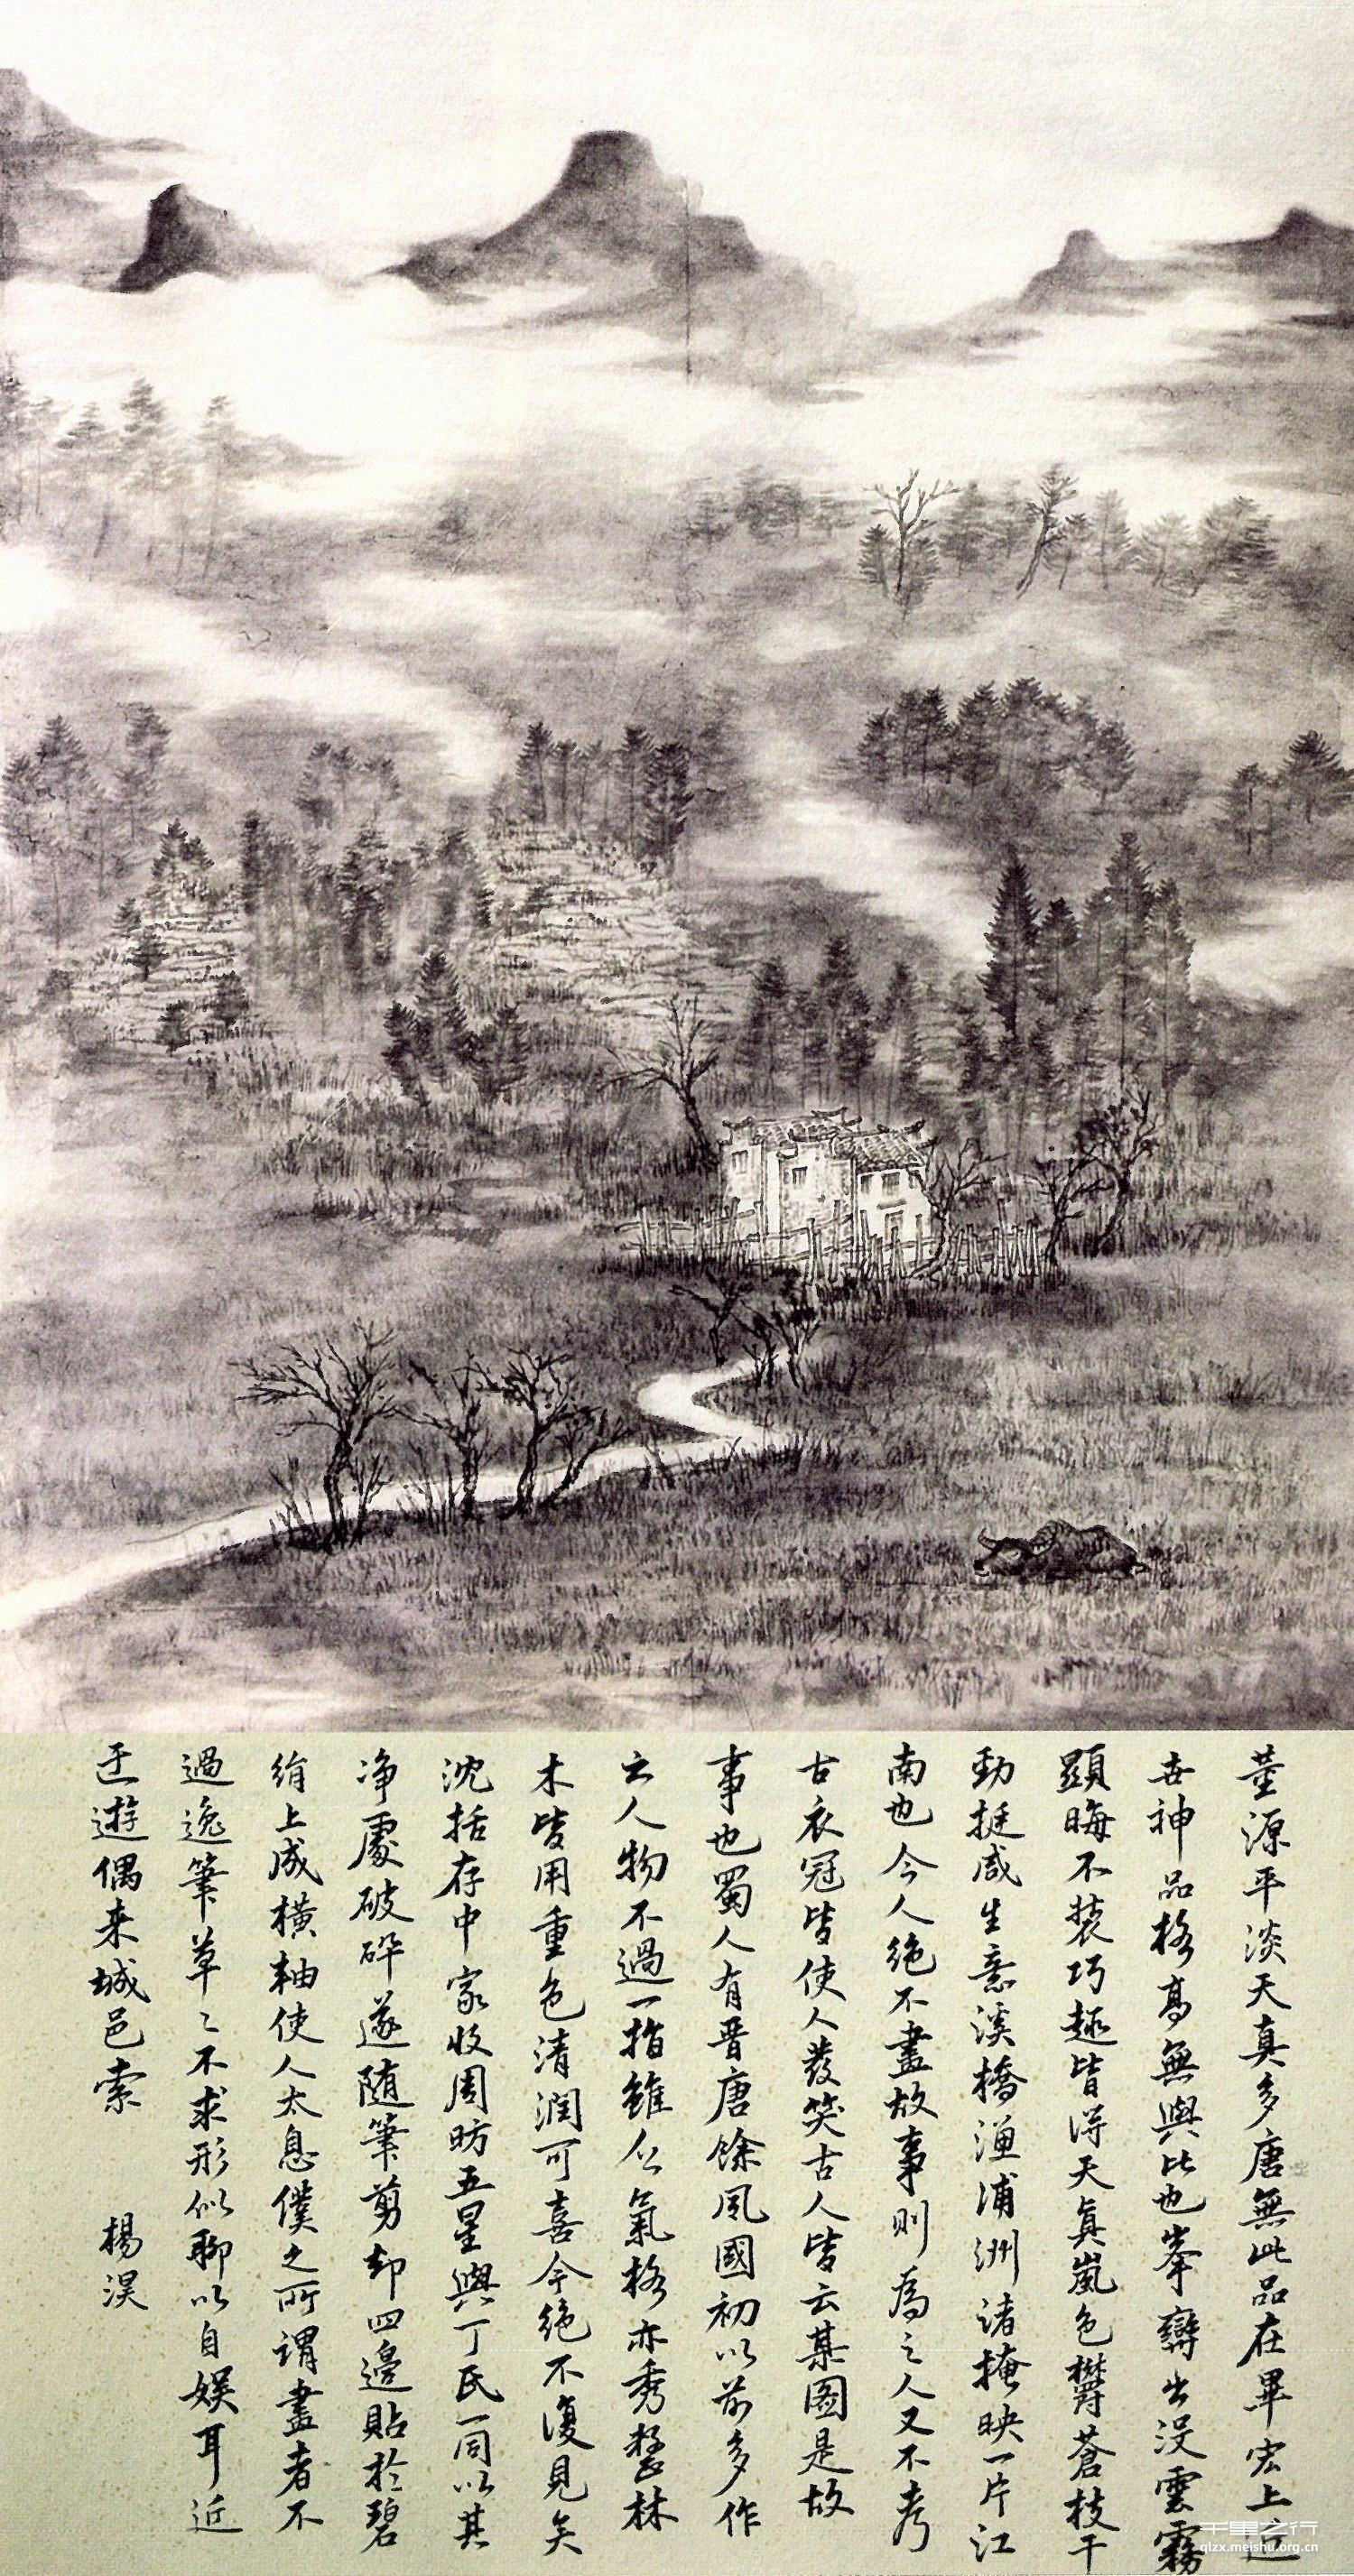 董源平淡天真多唐無此品在畢宏上近
世神品格高無與比也峯巒出没雲霧
顯晦不装巧趣皆得天真嵐色欝蒼枝干
勁挺咸生意溪橋漁浦洲渚掩映一片江
南也今人絶不畫故事則為之人又不考
古衣冠皆使人發笑古人皆云某圖是故
事也蜀人有晋唐餘風國初以前多作
之人物不過一指雖乏氣格亦秀整林
木皆用重色清潤可喜今絶不復見矣
沈括存中家收周昉五星與丁氏一同以其
净處破碎遂随筆剪却四邊貼於碧
絹上成横軸使人太息僕之所謂畫者不
過逸筆草〻不求形似聊以自娱耳近
迂遊偶来城邑索 楊淏
千里之行
qlzx.meishu.org.cn